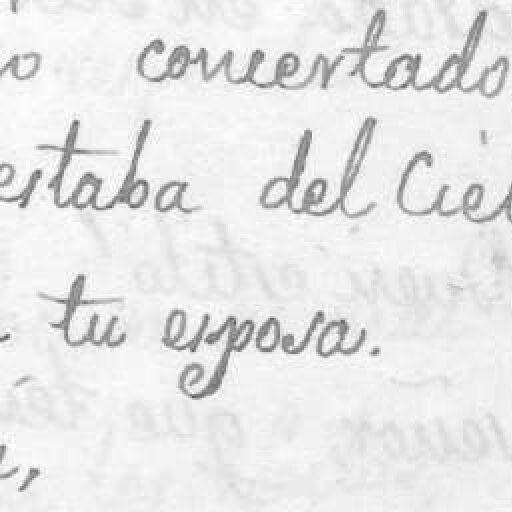 concertado
estaba del Ciel
tu esposa.